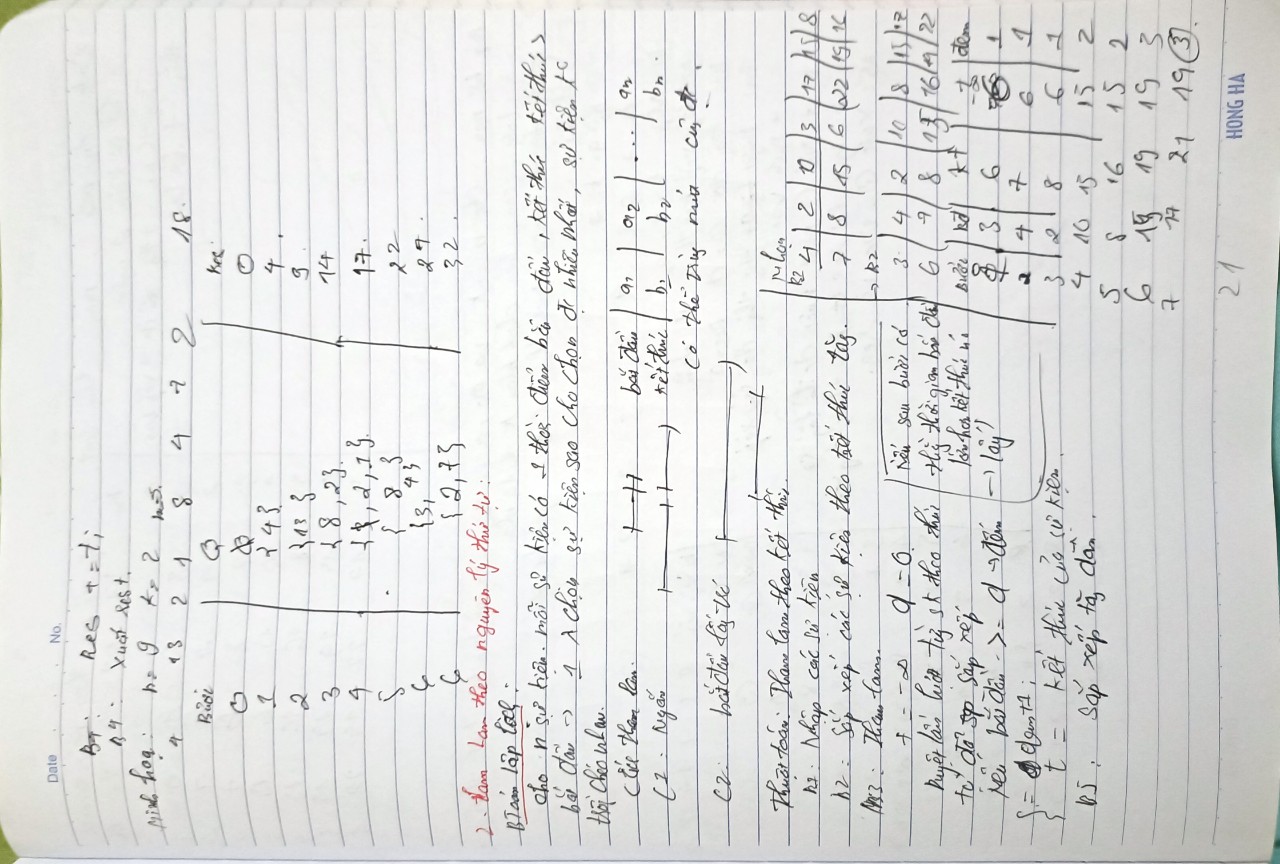 Date No.
B4: Res += t;
B4: Xuất rest.
Minh hoạ: n= 9 k= 2 m=5.
4 13 2 1 8 4 7 2 18.
Bước Q Res
0 0
1 {4} 4.
2 {13} 9.
3 {8,2}. 14
4 {1,2,1}. 17.
5 {8} 22
6 {3,4} 27.
6 {2,7} 32.
2. tham lam theo nguyên lý thứ tự:
BToán lập lịch:
cho n sự kiện. mỗi sự kiện có 1 thời điểm bắt đầu, kết thúc kết thúc >
bắt đầu → 1 chọn sự kiện sao cho chọn đc nhiều nhất, sự kiện k
trội chéo nhau.
Các tham lam.
C1: Ngắn
bắt đầu a1 a2 ... an
kết thúc b1 b2 bn.
có thể trùng mút cũng đc.
C2: bắt đầu lấy
Thuật toán: Tham lam theo kết thúc.
B1: Nhập các sự kiện
B2: Sắp xếp các sự kiện theo kết thúc tăng.
B3: Tham lam.
t = -∞ d = 0
Duyệt lần lượt từng sk theo thứ
tự đã sắp xếp
Nếu bắt đầu >= d → đếm
{ = dem+1;
{ t = kết thúc của sự kiện.
B5: Sắp xếp tăng dần.
Nếu sau bước có
thấy thời gian bắt đầu
lớn hơn kết thúc
→ lấy
Nhập
B1 4 2 10 3 17 15 8
7 8 15 6 22 19 16
→ B2
3 4 2 10 8 15 17
6 7 8 15 16 19 22
Bước Bđ KT t đếm
3 6 6 1
2 4 7 6 1
3 2 8 6 1
4 10 15 15 2
5 8 16 15 2
6 15 19 19 3
7 17 21 19 3
21
HONG HA